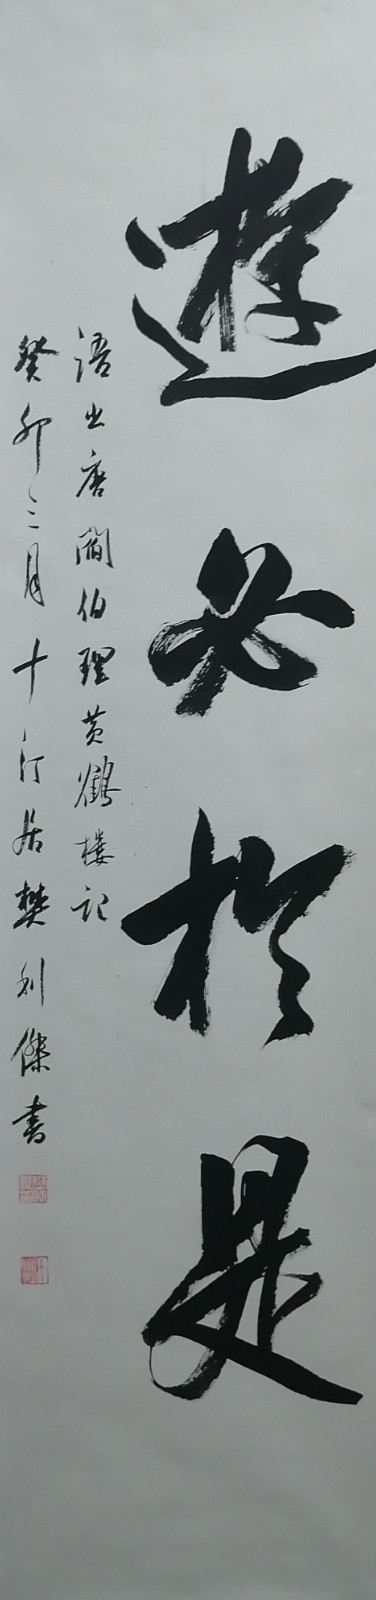 遊必於是
語出唐閻伯理黄鶴樓記
癸卯三月十汀居樊利傑書